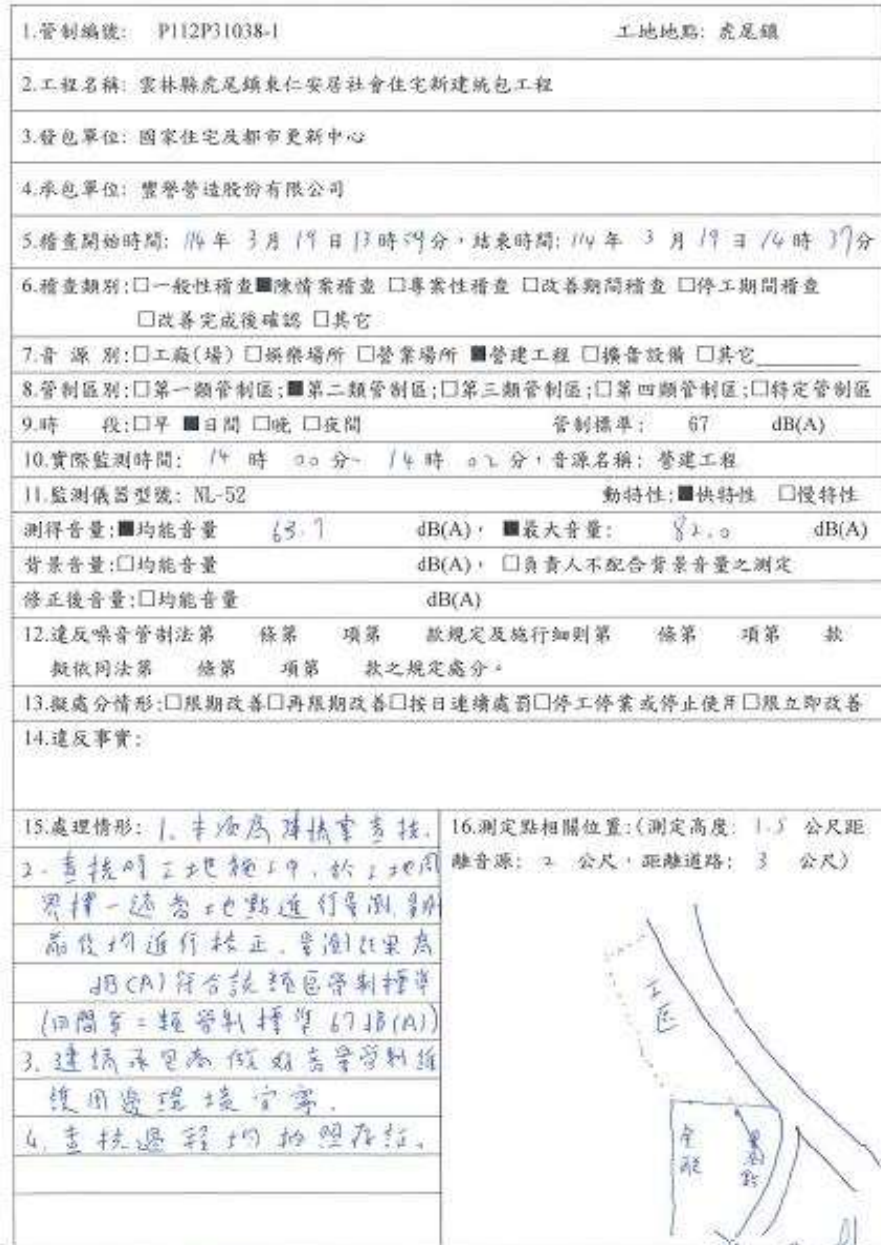 1.管制編號: P112P31038-1 工地地點: 虎尾鎮
2.工程名稱: 雲林縣虎尾鎮東仁安居社會住宅新建統包工程
3.發包單位: 國家住宅及都市更新中心
4.承包單位: 豐譽營造股份有限公司
5.稽查開始時間: 114年 3月 19日 13時59分,結束時間: 114年 3月 19日 14時 37分
6.稽查類別:□一般性稽查■陳情案稽查 □專案性稽查 □改善期間稽查 □停工期間稽查
□改善完成後確認 □其它
7.音 源 別:□工廠(場) □娛樂場所 □營業場所 ■營建工程 □擴音設備 □其它
8.管制區別:□第一類管制區;■第二類管制區;□第三類管制區;□第四類管制區;□特定管制區
9.時 段:□早 ■日間 □晚 □夜間 管制標準: 67 dB(A)
10.實際監測時間: 14 時 00分- 14時 02分,音源名稱: 營建工程
11.監測儀器型號: NL-52 動特性:■快特性 □慢特性
測得音量:■均能音量 63.7 dB(A), ■最大音量: 82.0 dB(A)
背景音量:□均能音量 dB(A), □負責人不配合背景音量之測定
修正後音量:□均能音量 dB(A)
12.違反噪音管制法第 條第 項第 款規定及施行細則第 條第 項第 款
擬依同法第 條第 項第 款之規定處分。
13.擬處分情形:□限期改善□再限期改善□按日連續處罰□停工停業或停止使用□限立即改善
14.違反事實:
15.處理情形: 1. 本次為陳情案查核.
2. 查核時工地施工中,於工地周
界擇一適當地點進行量測,量測
前後均進行校正.量測結果為
dB(A)符合該類區管制標準
(日間第二類管制標準67dB(A))
3. 建請承包商做好噪音管制維
護周邊環境安寧.
4. 查核過程均拍照存証.
16.測定點相關位置:(測定高度: 1.5 公尺距
離音源: 2 公尺,距離道路: 3 公尺)
工區
全聯
量測點